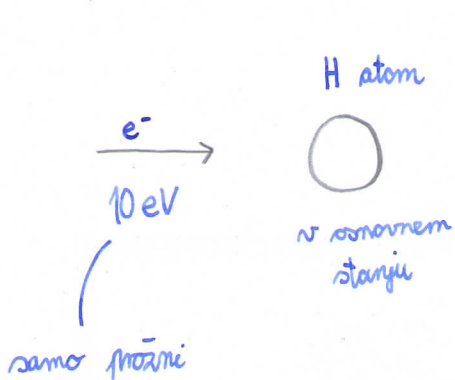 H atom
e⁻
10 eV
v osnovnem
stanju
samo prožni